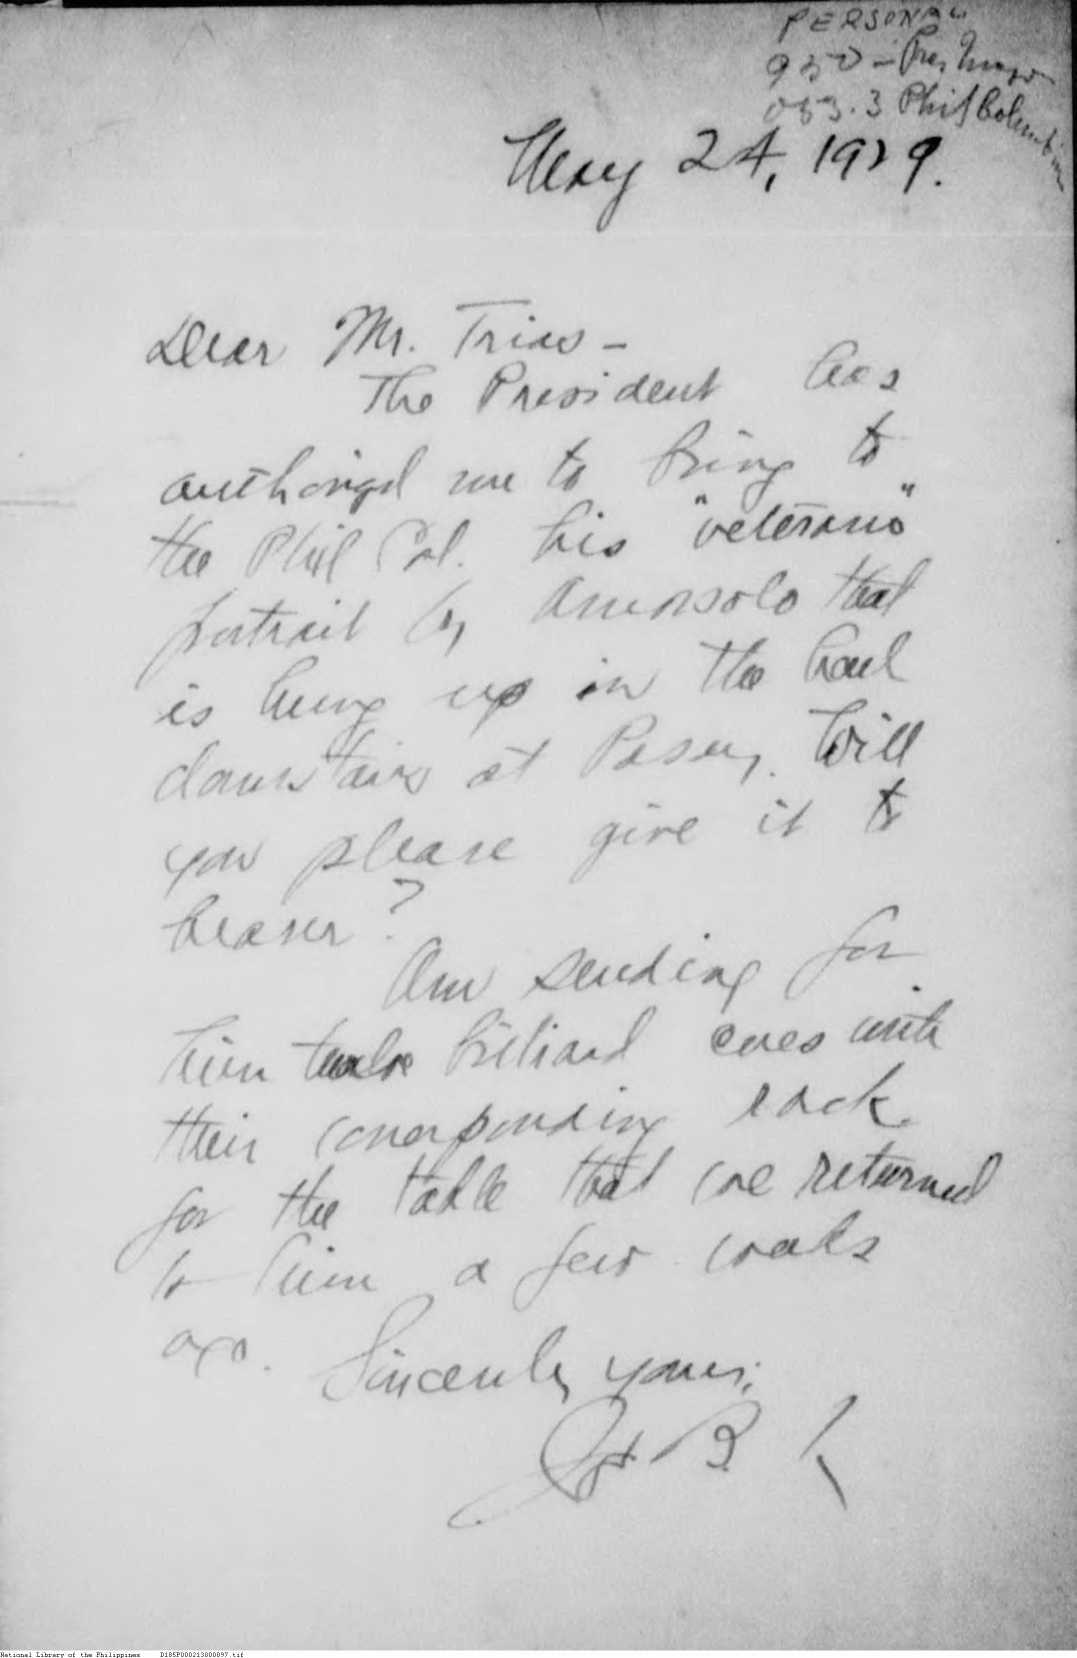 PERSONAL
950 - Pres Quezon
053.3 Phil Columbian
May 24, 1929.
Dear Mr. Trias -
The President has
authorized me to bring to
the Phil Col. his "veterano"
portrait by Amorsolo that
is hung up in the hall
downstairs at Pasay. Will
you please give it to
bearer?
Am sending for
him twelve billiard cues with
their corresponding rack
for the table that we returned
to him a few weeks
ago.
Sincerely yours,
National Library of the Philippines D185P000213800897.tif